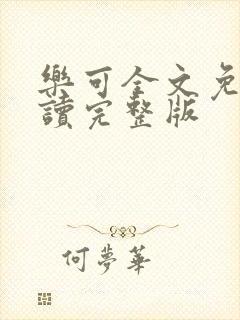 樂可全文免
讀完整版
何夢華